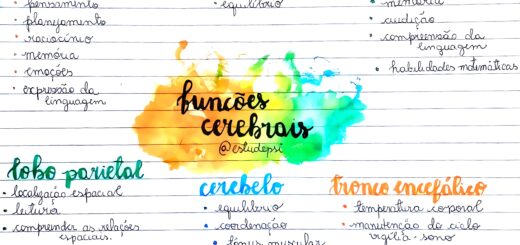 • pensamento
• planejamento
• raciocínio
• memória
• emoções
• expressão da
linguagem
equilíbrio
• memória
• audição
• compreensão da
linguagem
• habilidades matemáticas
funções
cerebrais
@estudepsi
lobo parietal
• localização espacial
• leitura
• compreender as relações
espaciais.
cerebelo
• equilíbrio
• coordenação
• tônus muscular
tronco encefálico
• temperatura corporal
• manutenção do ciclo
vigília-sono